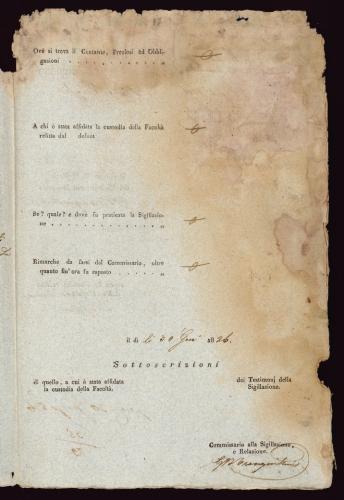 Ove si trova il Contante, Preziosi ed Obbli-
gazioni . . . . . . . . . . „
A chi è stata affidata la custodia della Facoltà
relitta dal defunto
Se? quale? e dove fu praticata la Sigillazio-
ne . . . . . . . . . . „
Rimarche da farsi del Commissario, oltre
quanto fin' ora fu esposto . . . . . „
il dì li 30 1826.
Sottoscrizioni
di quello, a cui è stata affidata
la custodia della Facoltà.
dei Testimonj della
Sigillazione.
Commissario alla Sigillazione,
e Relazione.